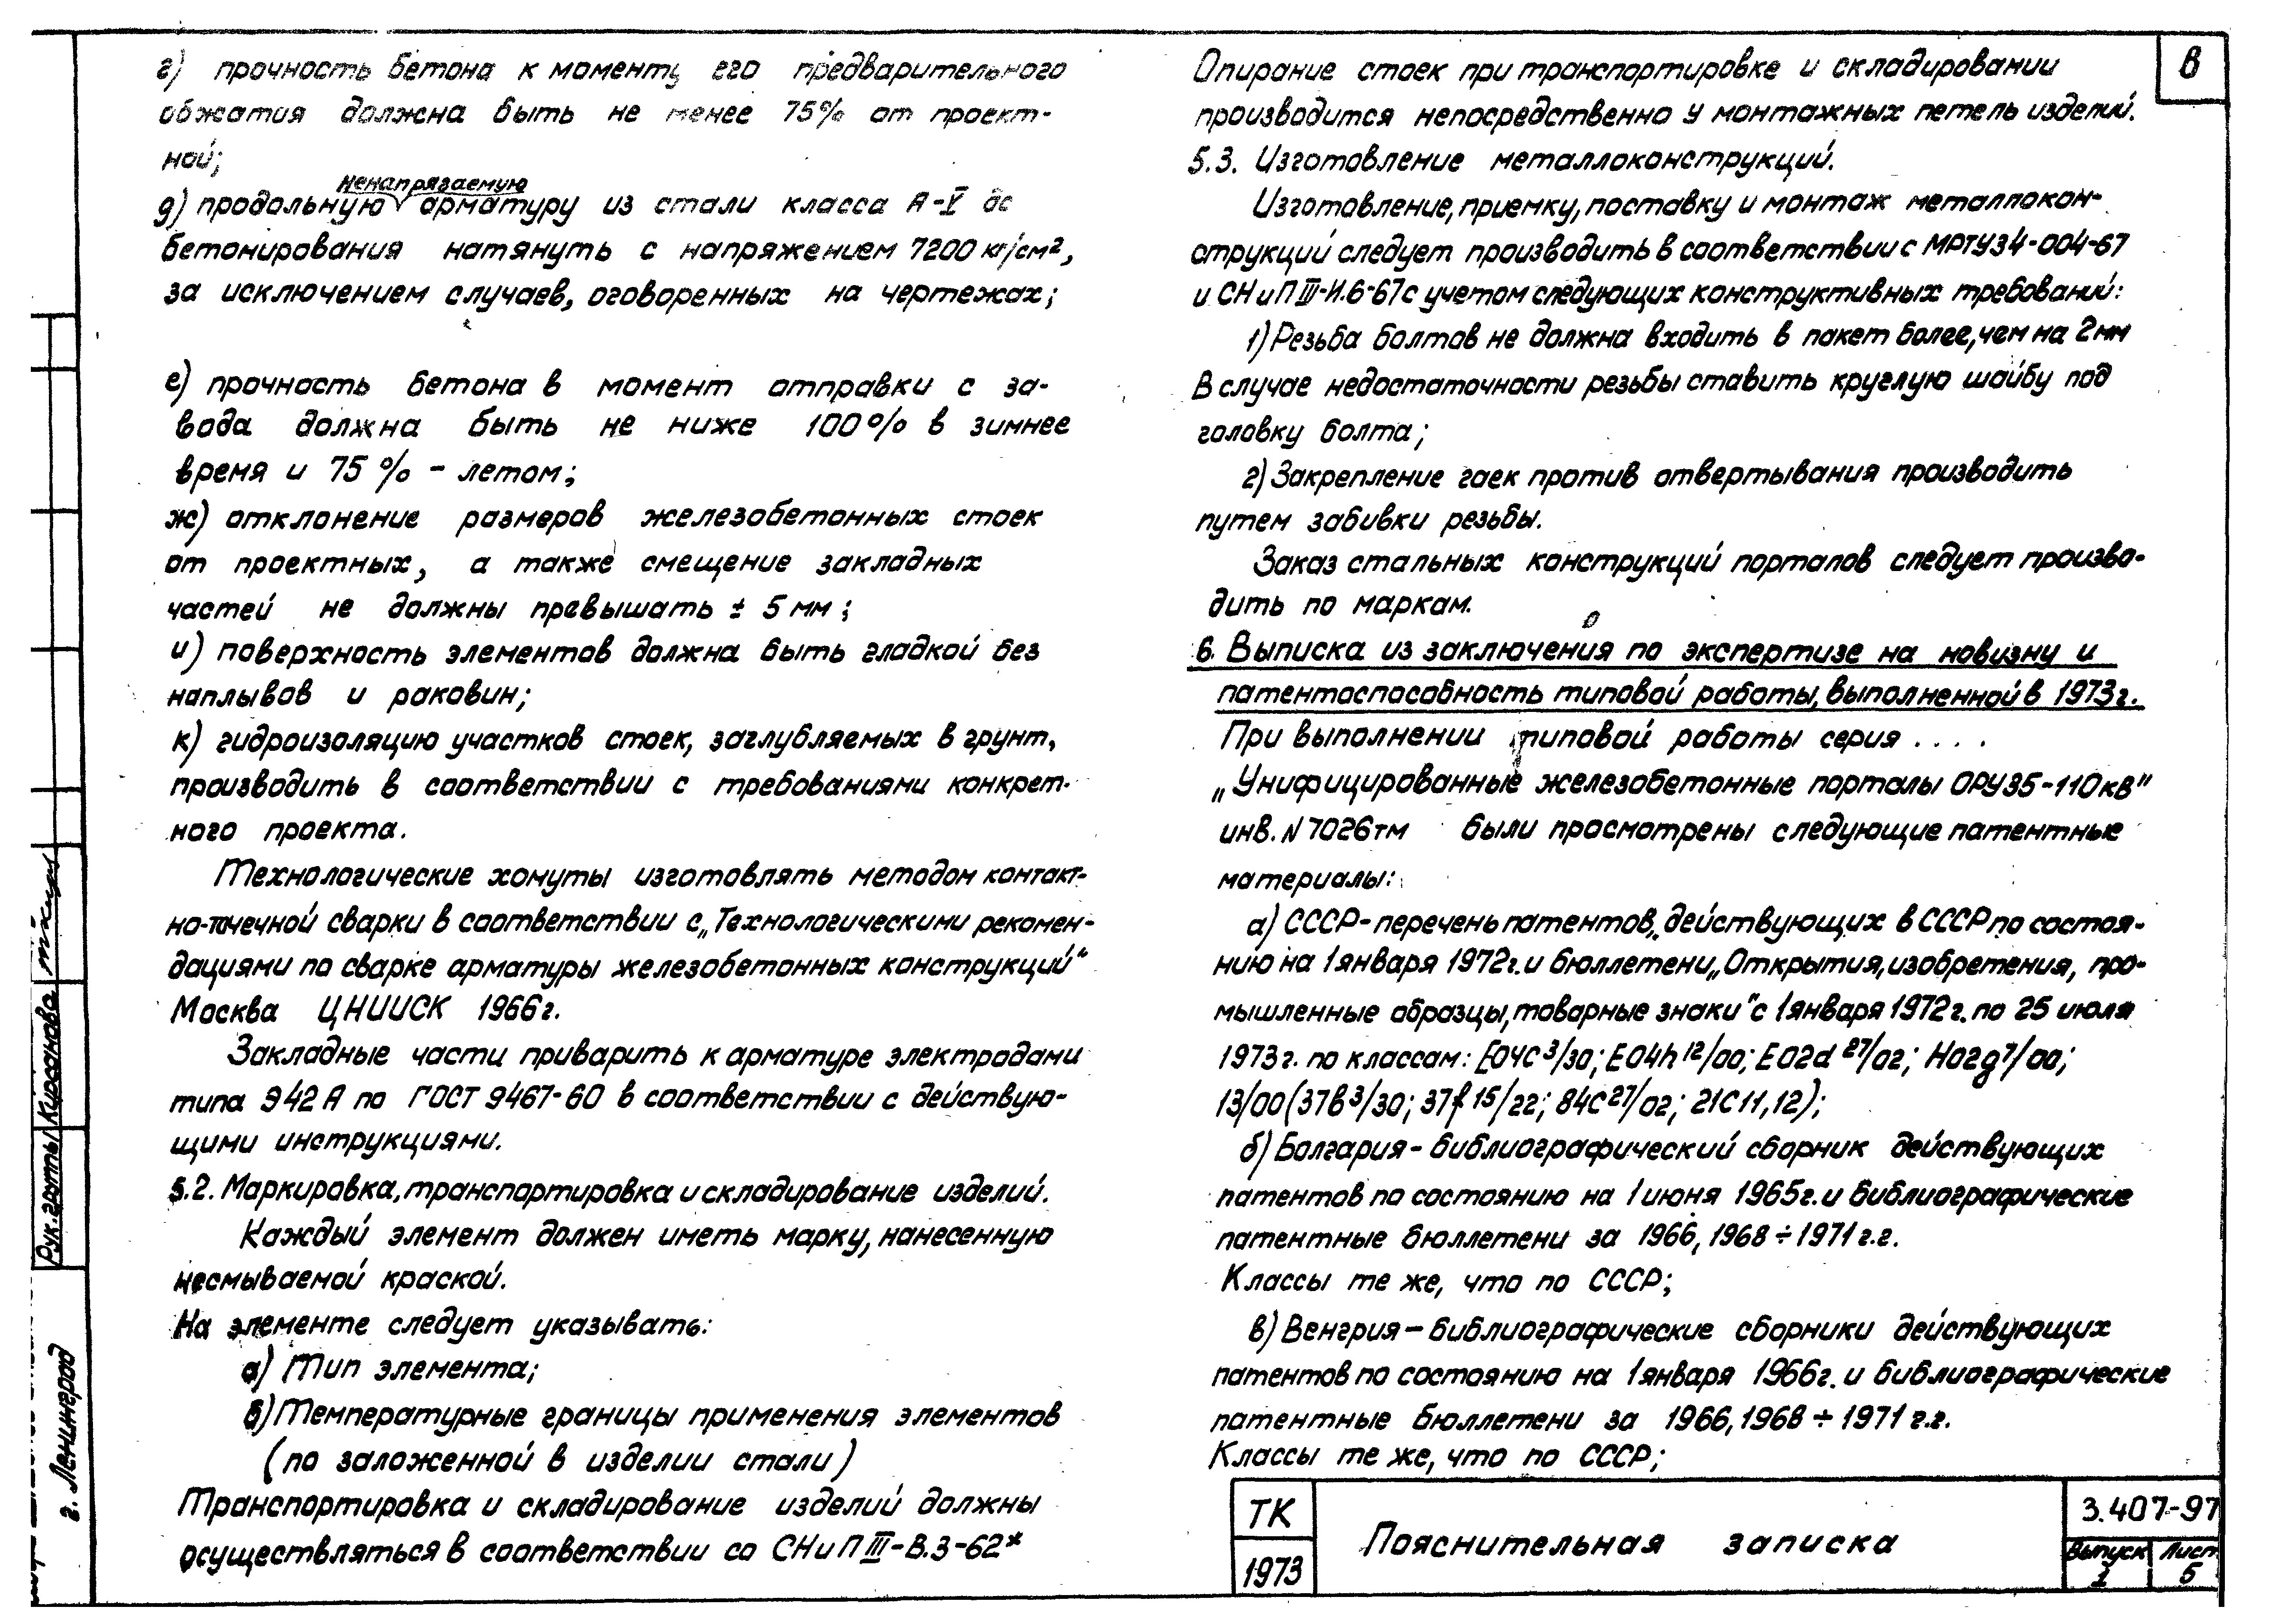 г) прочность бетона к моменту его предварительного
обжатия должна быть не менее 75% от проект-
ной;
ненапрягаемую
д) продольную арматуру из стали класса А-V до
бетонирования натянуть с напряжением 7200 кг/см²,
за исключением случаев, оговоренных на чертежах;
е) прочность бетона в момент отправки с за-
вода должна быть не ниже 100% в зимнее
время и 75% - летом;
ж) отклонение размеров железобетонных стоек
от проектных, а также смещение закладных
частей не должны превышать ± 5 мм;
и) поверхность элементов должна быть гладкой без
наплывов и раковин;
к) гидроизоляцию участков стоек, заглубляемых в грунт,
производить в соответствии с требованиями конкрет-
ного проекта.
Технологические хомуты изготовлять методом контакт-
но-точечной сварки в соответствии с „Технологическими рекомен-
дациями по сварке арматуры железобетонных конструкций“
Москва ЦНИИСК 1966г.
Закладные части приварить к арматуре электродами
типа Э42А по ГОСТ 9467-60 в соответствии с действую-
щими инструкциями.
5.2. Маркировка, транспортировка и складирование изделий.
Каждый элемент должен иметь марку, нанесенную
несмываемой краской.
На элементе следует указывать:
а) Тип элемента;
б) Температурные границы применения элементов
(по заложенной в изделии стали)
Транспортировка и складирование изделий должны
осуществляться в соответствии со СНиП III-В.3-62*
Опирание стоек при транспортировке и складировании
производится непосредственно у монтажных петель изделий.
5.3. Изготовление металлоконструкций.
Изготовление, приемку, поставку и монтаж металлокон-
струкций следует производить в соответствии с МРТУ34-004-67
и СНиП III-И.6-67 с учетом следующих конструктивных требований:
1) Резьба болтов не должна входить в пакет более, чем на 2мм
В случае недостаточности резьбы ставить круглую шайбу под
головку болта;
г) Закрепление гаек против отвертывания производить
путем забивки резьбы.
Заказ стальных конструкций порталов следует произво-
дить по маркам.
6. Выписка из заключения по экспертизе на новизну и
патентоспособность типовой работы, выполненной в 1973г.
При выполнении типовой работы серия . . . .
„Унифицированные железобетонные порталы ОРУ35-110кв"
инв. N 7026тм были просмотрены следующие патентные
материалы:
а) СССР- перечень патентов, действующих в СССР по состоя-
нию на 1 января 1972г. и бюллетени „Открытия, изобретения, про-
мышленные образцы, товарные знаки" с 1 января 1972 г. по 25 июля
1973 г. по классам: E04C 3/30; E04h 12/00; E02d 27/02; H02g 7/00;
13/00 (37в 3/30; 37f 15/22; 84C 27/02; 21C 11,12);
б) Болгария - библиографический сборник действующих
патентов по состоянию на 1 июня 1965г. и библиографические
патентные бюллетени за 1966, 1968 ÷ 1971 г.г.
Классы те же, что по СССР;
в) Венгрия - библиографические сборники действующих
патентов по состоянию на 1 января 1966г. и библиографические
патентные бюллетени за 1966, 1968 ÷ 1971 г.г.
Классы те же, что по СССР;
8
ТК
1973
Пояснительная записка
3.407-97
Выпуск
1
Лист
5
Рук. группы Кирсанова
г. Ленинград